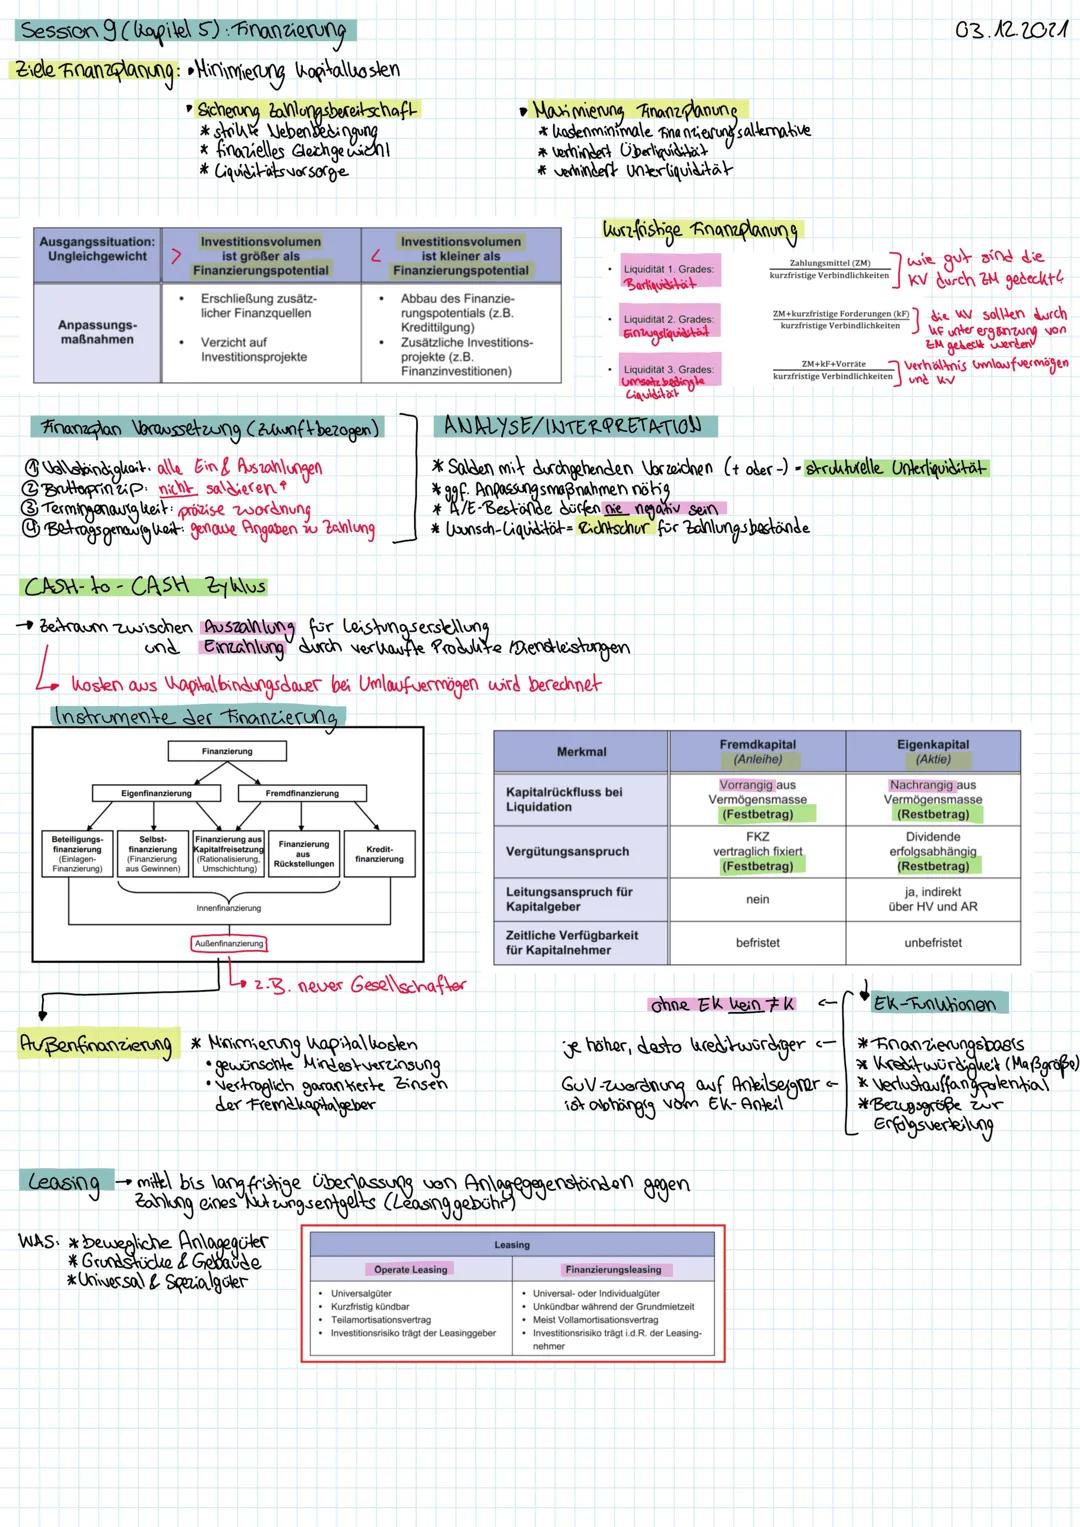 Session 9 (Kapitel 5): Finanzierung
03.12.2021
Ziele Finanzplanung: • Minimierung Kapitalkosten
• Sicherung Zahlungsbereitschaft
* strikte Nebenbedingung
* finazielles Gleichgewicht
* Liquiditätsvorsorge
• Maximierung Finanzplanung
* kostenminimale Finanzierungsalternative
* verhindert Überliquidität
* verhindert Unterliquidität
Ausgangssituation: Ungleichgewicht
> Investitionsvolumen ist größer als Finanzierungspotential
< Investitionsvolumen ist kleiner als Finanzierungspotential
Anpassungs-
maßnahmen
• Erschließung zusätz-
licher Finanzquellen
• Verzicht auf
Investitionsprojekte
• Abbau des Finanzie-
rungspotentials (z.B.
Kredittilgung)
• Zusätzliche Investitions-
projekte (z.B.
Finanzinvestitionen)
kurzfristige Finanzplanung
• Liquidität 1. Grades:
Barliquidität
Zahlungsmittel (ZM)
kurzfristige Verbindlichkeiten
wie gut sind die
KV durch ZM gedeckt?
• Liquidität 2. Grades:
Einzugsliquidität
ZM+kurzfristige Forderungen (kF)
kurzfristige Verbindlichkeiten
die KV sollten durch
kF unter ergänzung von
ZM gedeckt werden
• Liquidität 3. Grades:
Umsatzbedingte
Liquidität
ZM+kF+Vorräte
kurzfristige Verbindlichkeiten
Verhältnis Umlaufvermögen
und KV
Finanzplan Voraussetzung (Zukunftbezogen)
① Vollständigkeit: alle Ein & Auszahlungen
② Bruttoprinzip: nicht saldieren!
③ Termingenauigkeit: präzise zuordnung
④ Betragsgenauigkeit: genaue Angaben zu Zahlung
ANALYSE/INTERPRETATION
* Salden mit durchgehenden Vorzeichen (+ oder -) = strukturelle Unterliquidität
* ggf. Anpassungsmaßnahmen nötig
* A/E-Bestände dürfen nie negativ sein
* Wunsch-Liquidität = Richtschur für Zahlungsbestände
CASH-to-CASH Zyklus
→ Zeitraum zwischen Auszahlung für Leistungserstellung
und Einzahlung durch verkaufte Produkte/Dienstleistungen
Kosten aus Kapitalbindungsdauer bei Umlaufvermögen wird berechnet
Instrumente der Finanzierung
Finanzierung
Eigenfinanzierung
Fremdfinanzierung
Beteiligungs-
finanzierung
(Einlagen-
Finanzierung)
Selbst-
finanzierung
(Finanzierung
aus Gewinnen)
Finanzierung aus
Kapitalfreisetzung
(Rationalisierung,
Umschichtung)
Finanzierung
aus
Rückstellungen
Kredit-
finanzierung
Innenfinanzierung
Außenfinanzierung
z.B. neuer Gesellschafter
Merkmal
Fremdkapital
(Anleihe)
Eigenkapital
(Aktie)
Kapitalrückfluss bei
Liquidation
Vorrangig aus
Vermögensmasse
(Festbetrag)
Nachrangig aus
Vermögensmasse
(Restbetrag)
Vergütungsanspruch
FKZ
vertraglich fixiert
(Festbetrag)
Dividende
erfolgsabhängig
(Restbetrag)
Leitungsanspruch für
Kapitalgeber
nein
ja, indirekt
über HV und AR
Zeitliche Verfügbarkeit
für Kapitalnehmer
befristet
unbefristet
Außenfinanzierung
* Minimierung Kapitalkosten
• gewünschte Mindestverzinsung
• vertraglich garantierte Zinsen
der Fremdkapitalgeber
EK-Funktionen
ohne EK kein FK ←
* Finanzierungsbasis
je höher, desto kreditwürdiger ←
* Kreditwürdigkeit (Maßgröße)
* Verlustauffangpotential
GuV-zuordnung auf Anteilseigner ←
ist abhängig vom EK-Anteil
* Bezugsgröße zur
Erfolgsverteilung
Leasing → mittel bis langfristige Überlassung von Anlagegegenständen gegen
Zahlung eines Nutzungsentgelts (Leasinggebühr)
WAS: * bewegliche Anlagegüter
* Grundstücke & Gebäude
* Universal & Spezialgüter
Leasing
Operate Leasing
Finanzierungsleasing
• Universalgüter
• Kurzfristig kündbar
• Teilamortisationsvertrag
• Investitionsrisiko trägt der Leasinggeber
• Universal- oder Individualgüter
• Unkündbar während der Grundmietzeit
• Meist Vollamortisationsvertrag
• Investitionsrisiko trägt i.d.R. der Leasing-
nehmer